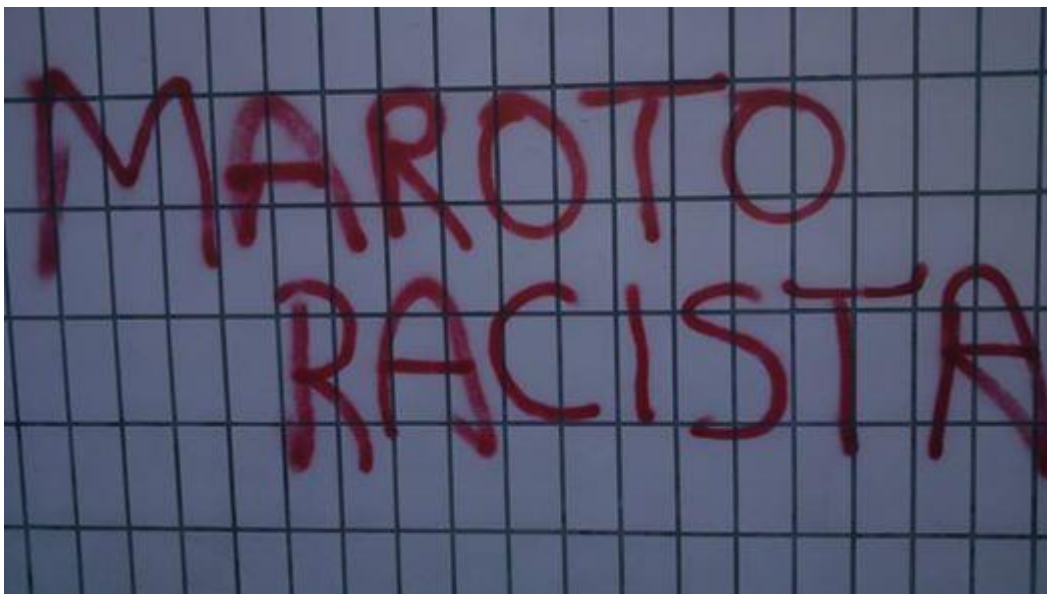 MAROTO
RACISTA